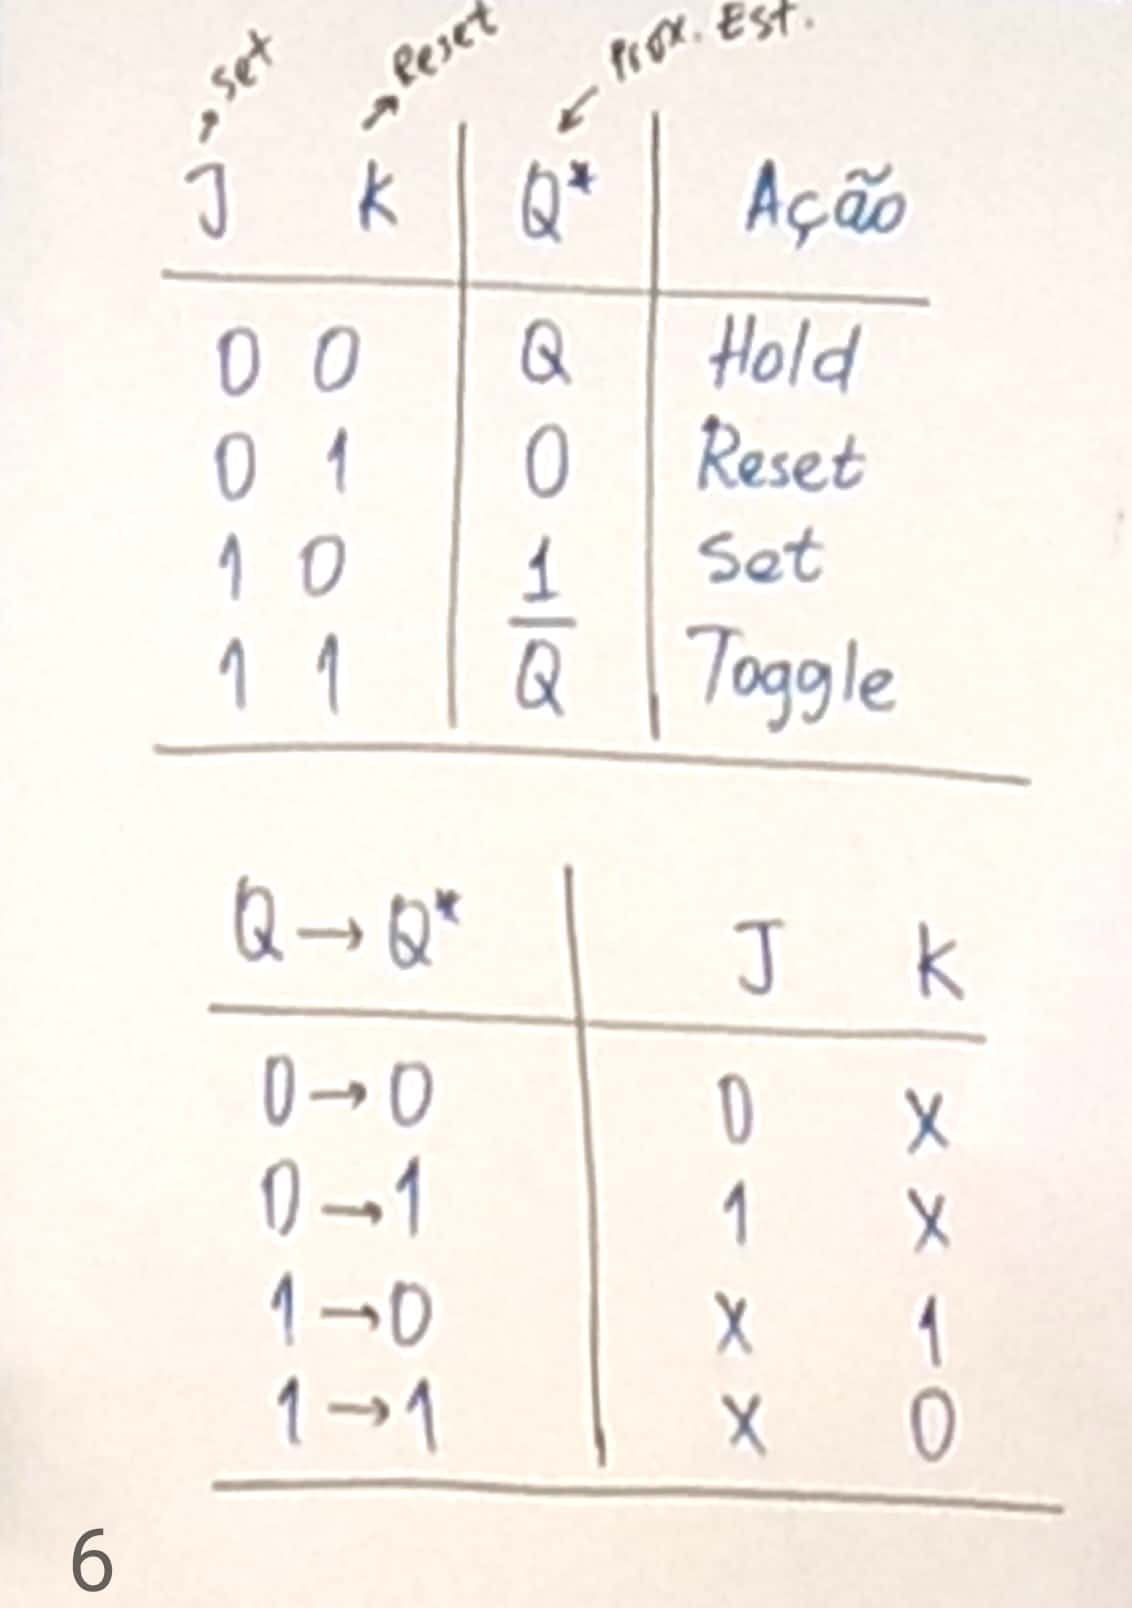 Set Reset Prox. Est.
J K Q* Ação
0 0 Q Hold
0 1 0 Reset
1 0 1 Set
1 1 Q̅ Toggle
Q→Q* J K
0→0 0 X
0→1 1 X
1→0 X 1
1→1 X 0
6